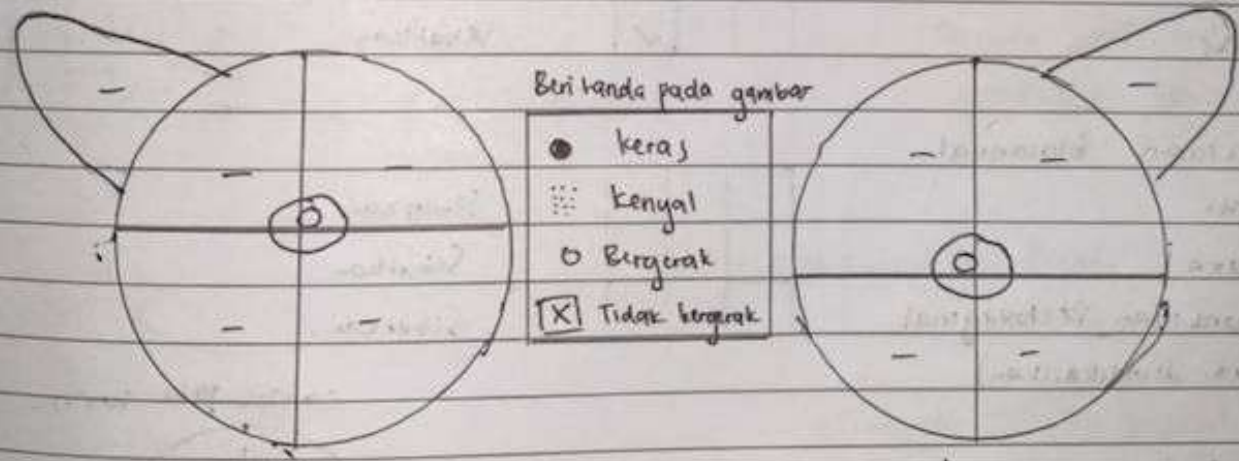 Beri tanda pada gambar
keras
kenyal
Bergerak
X Tidak bergerak